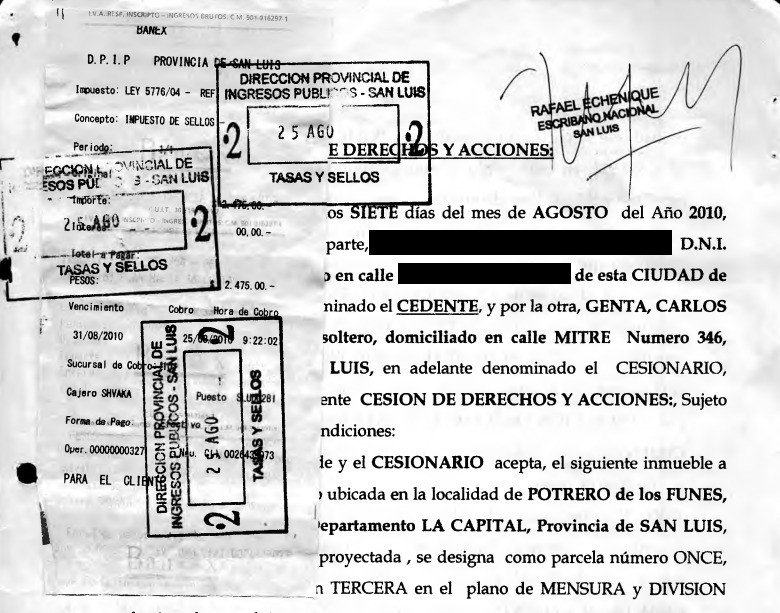 I.V.A. RESP. INSCRIPTO - INGRESOS BRUTOS: C.M. 901-916297-1
BANEX
D.P.I.P PROVINCIA DE SAN LUIS
Impuesto: LEY 5776/04 - REF
Concepto: IMPUESTO DE SELLOS -
Periodo: 1/1
Importe:
2.475.00.-
00,00.-
Total a Pagar:
PESOS: 2.475.00.-
Vencimiento Cobro Hora de Cobro
31/08/2010 25/08/2010 9:22:02
Sucursal de Cobro
Cajero SHVAKA Puesto
Forma de Pago:
Oper. 00000000327
PARA EL CLIENTE
DIRECCION PROVINCIAL DE
INGRESOS PUBLICOS - SAN LUIS
2 25 AGO 2
TASAS Y SELLOS
DIRECCION PROVINCIAL DE
INGRESOS PUBLICOS - SAN LUIS
25 AGO 2
TASAS Y SELLOS
DIRECCION PROVINCIAL DE
INGRESOS PUBLICOS - SAN LUIS
2 25 AGO 2
TASAS Y SELLOS
RAFAEL ECHENIQUE
ESCRIBANO NACIONAL
SAN LUIS
E DERECHOS Y ACCIONES:
os SIETE días del mes de AGOSTO del Año 2010,
parte, D.N.I.
o en calle de esta CIUDAD de
minado el CEDENTE, y por la otra, GENTA, CARLOS
soltero, domiciliado en calle MITRE Numero 346,
LUIS, en adelante denominado el CESIONARIO,
ente CESION DE DERECHOS Y ACCIONES:, Sujeto
ndiciones:
de y el CESIONARIO acepta, el siguiente inmueble a
ubicada en la localidad de POTRERO de los FUNES,
Departamento LA CAPITAL, Provincia de SAN LUIS,
proyectada , se designa como parcela número ONCE,
n TERCERA en el plano de MENSURA y DIVISION